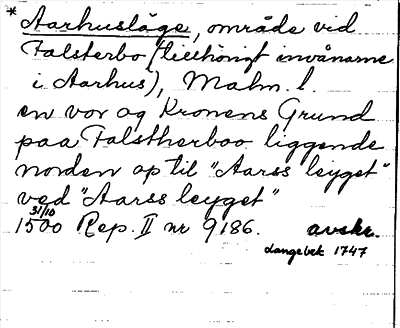 * Aarhusläge, område ved
Falsterbo (tillhörigt invånarne
i Aarhus), Malm. l.
en vor og Kronens Grund
paa Falstherboo liggende
norden op til "Aarss leyget"
ved "Aarss leyget"
31/10
1500 Rep. II nr 9186. avskr.
Langebek 1747